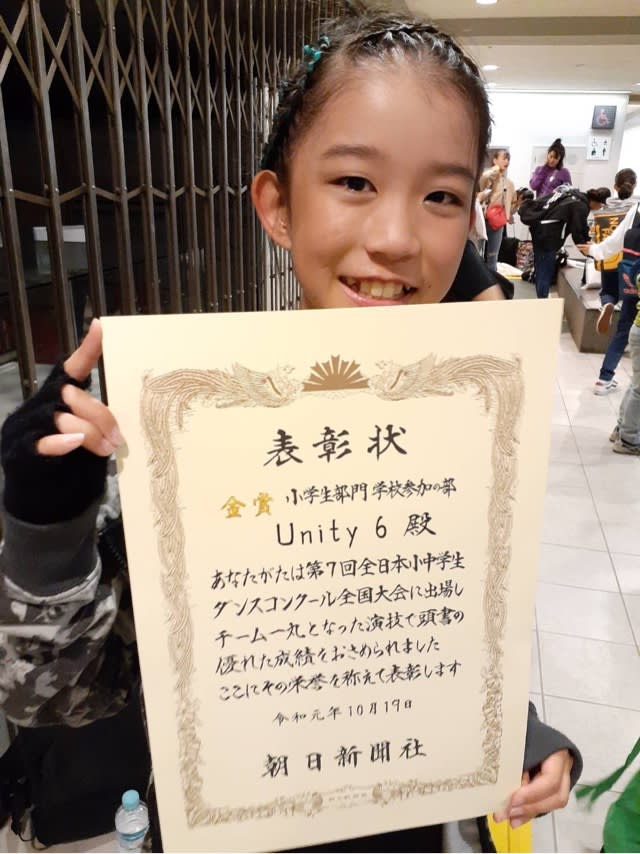 表彰状
金賞 小学生部門 学校参加の部
Unity 6 殿
あなたがたは第7回全日本小中学生
ダンスコンクール全国大会に出場し
チーム一丸となった演技で頭書の
優れた成績をおさめられました
ここにその栄誉を称えて表彰します
令和元年10月19日
朝日新聞社